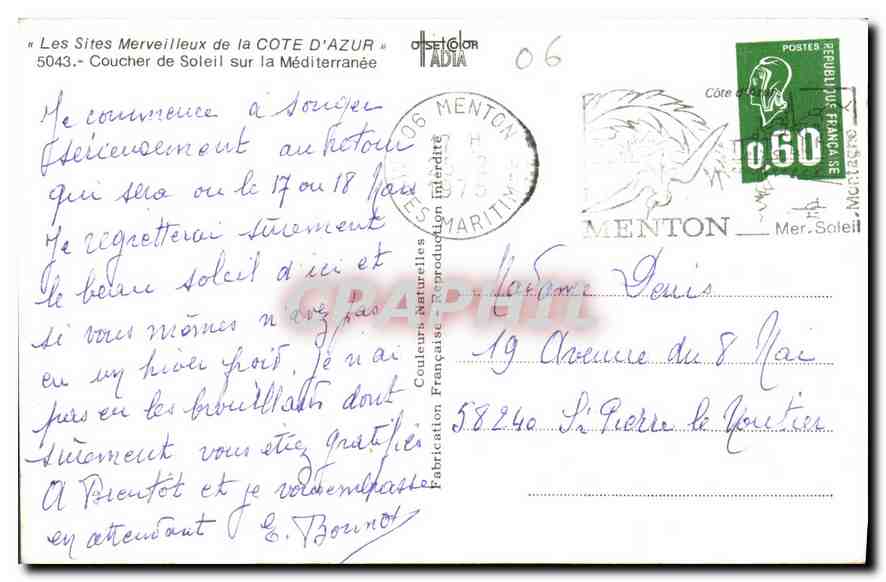 « Les Sites Merveilleux de la COTE D'AZUR »
5043.- Coucher de Soleil sur la Méditerranée
OFFSET COLOR
TADIA
06
Je commence à songer
sérieusement au retour
qui sera ou le 17 ou 18 Mars
Je regretterai sûrement
le beau soleil d'ici et
si vous mêmes n'avez pas
eu un hiver froit, je n'ai
pas eu les brouillards dont
sûrement vous étiez gratifiés
A Bientôt et je vous embrasse
en attendant E. Bonnot
Couleurs Naturelles
Fabrication Française - Reproduction interdite
06 MENTON
ALPES MARITIMES
Côte d'Azur
MENTON
Mer. Soleil
Montagne
POSTES
REPUBLIQUE FRANÇAISE
0,60
Madame Denis
19 Avenue du 8 Mai
58240 St Pierre le Moutier
CPAPHIL